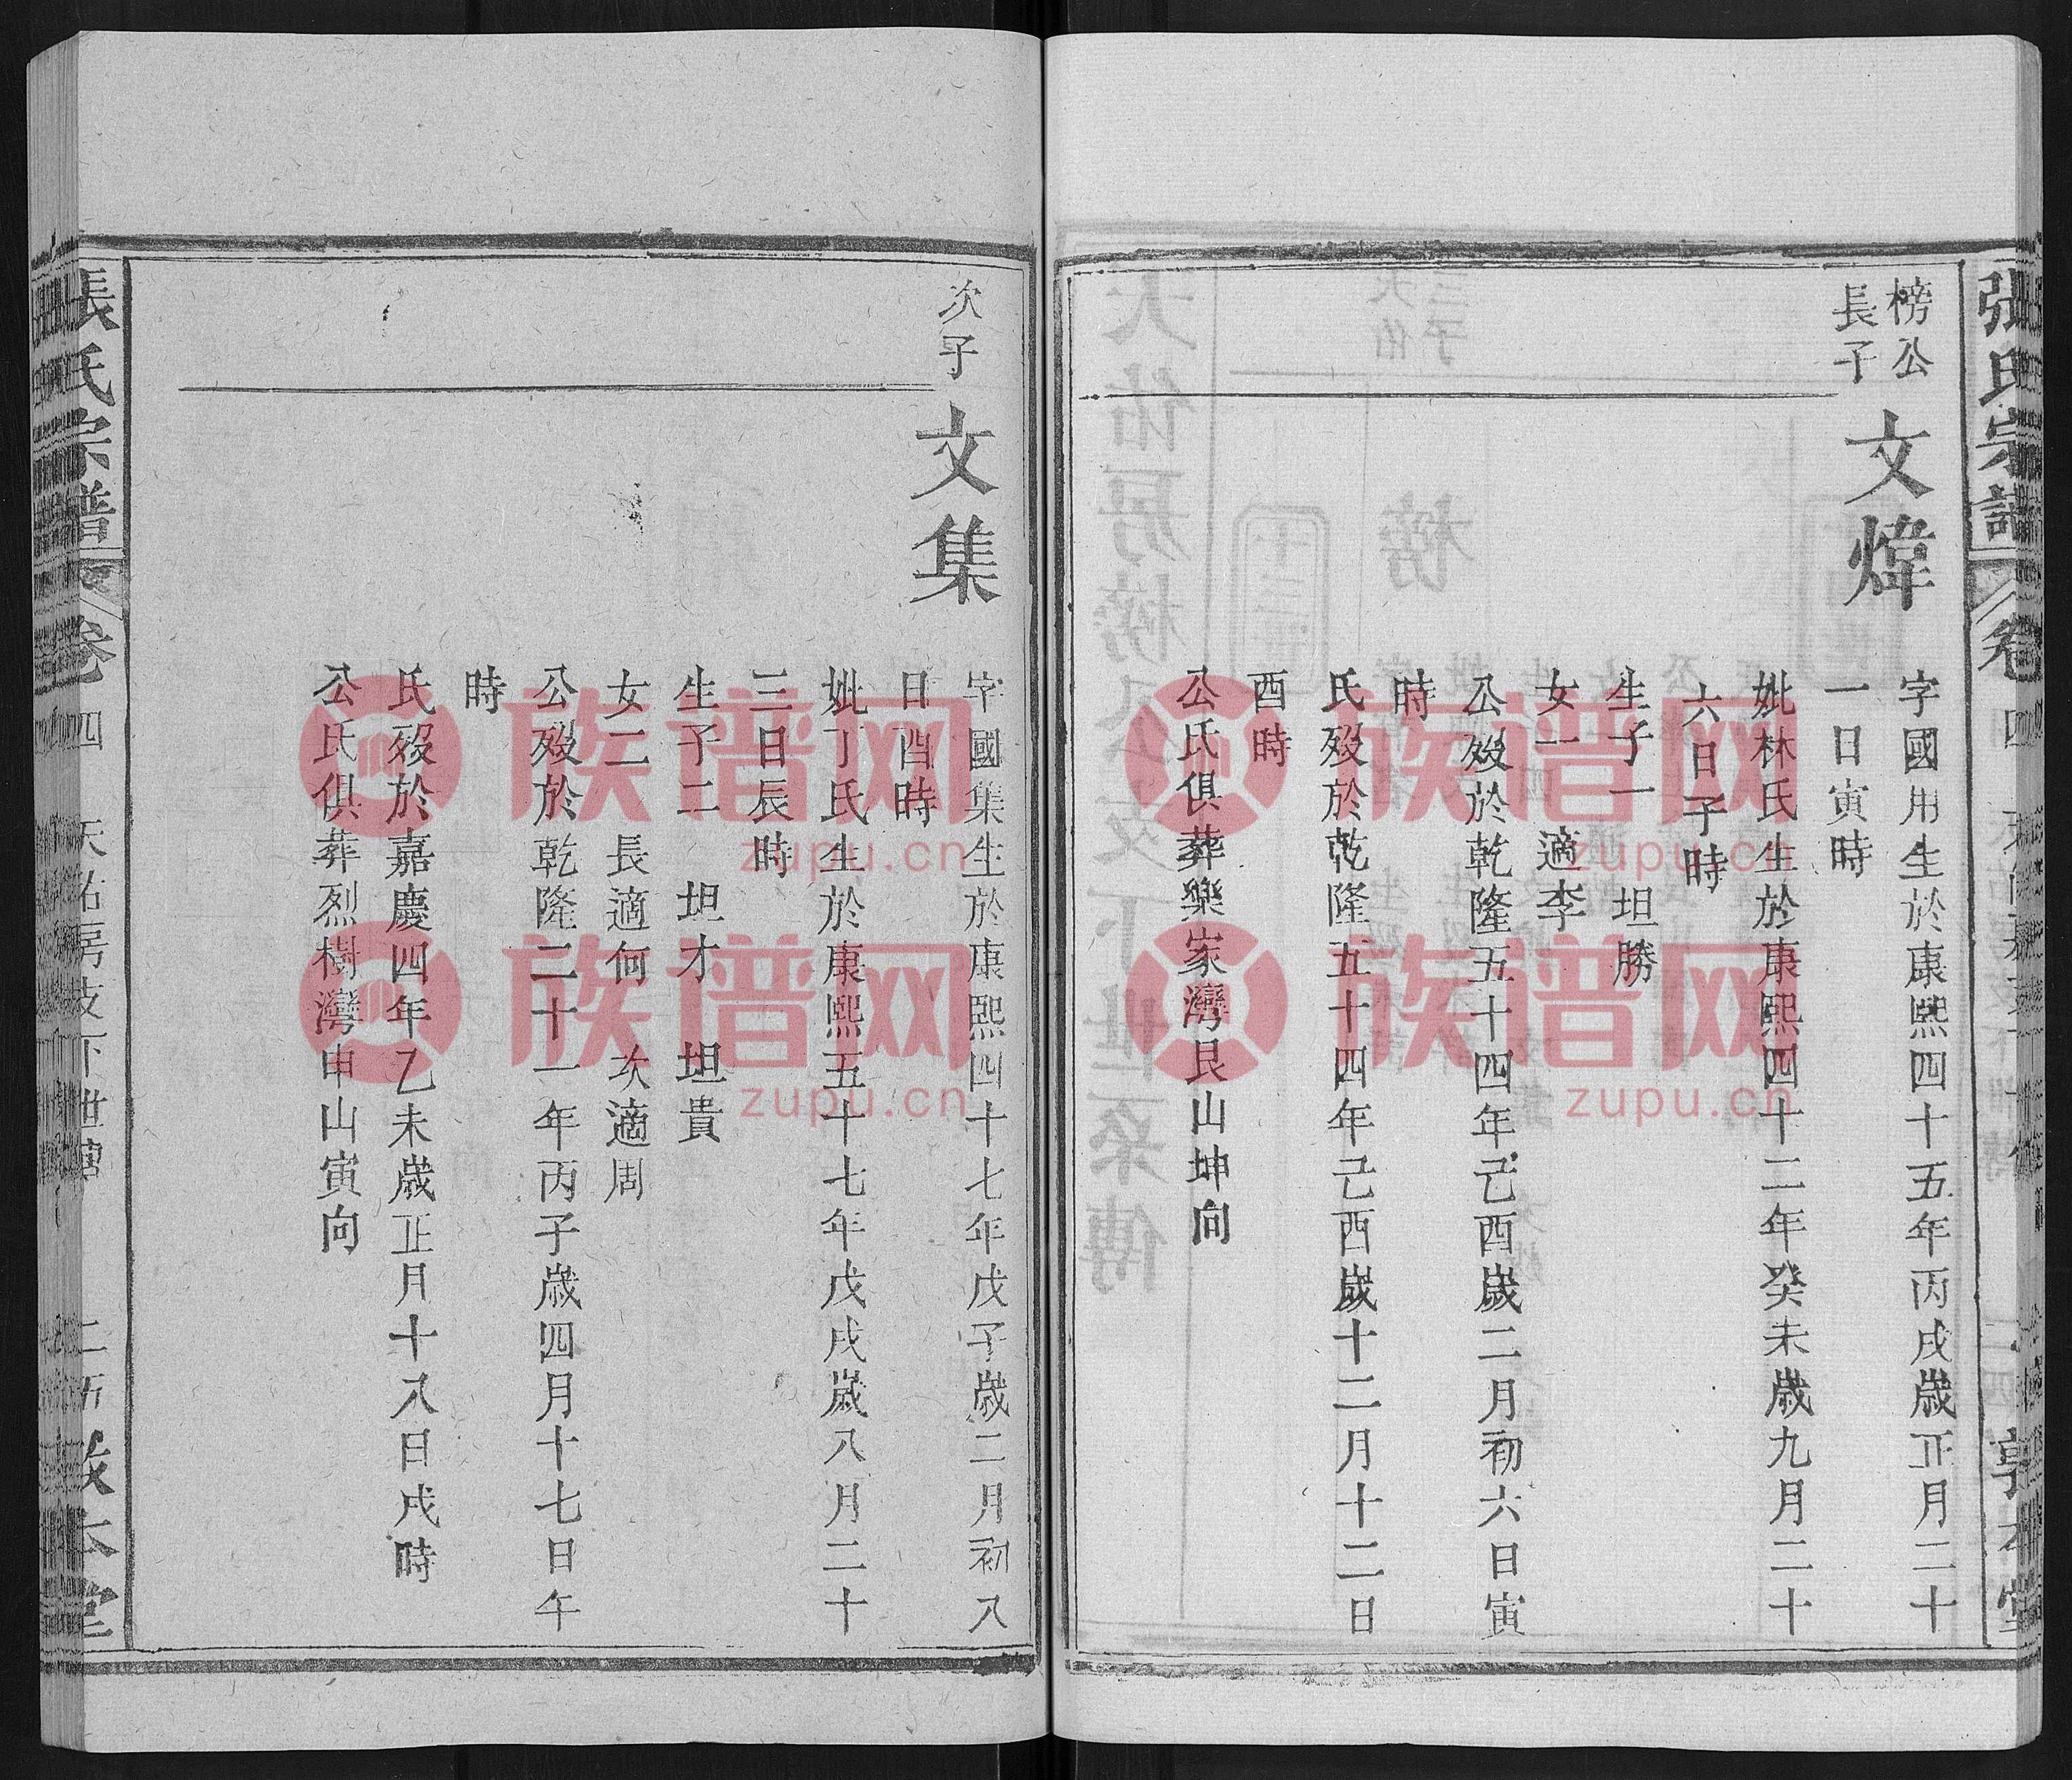 榜公
長子
文煒
字國用生於康熙四十五年丙戌歲正月二十
一日寅時
妣林氏生於康熙四十二年癸未歲九月二十
六日子時
生子一 坦勝
女一 適李
公歿於乾隆五十四年己酉歲二月初六日寅
時
氏歿於乾隆五十四年己酉歲十二月十二日
酉時
公氏俱葬樂家灣艮山坤向
次子
文集
字國集生於康熙四十七年戊子歲二月初八
日酉時
妣丁氏生於康熙五十七年戊戌歲八月二十
三日辰時
生子二 坦才 坦貴
女二 長適何 次適周
公歿於乾隆二十一年丙子歲四月十七日午
時
氏歿於嘉慶四年乙未歲正月十八日戌時
公氏俱葬烈樹灣申山寅向
張氏宗譜
卷四
天祐房
堂
族谱网
zupu.cn
族谱网
zupu.cn
族谱网
zupu.cn
族谱网
zupu.cn